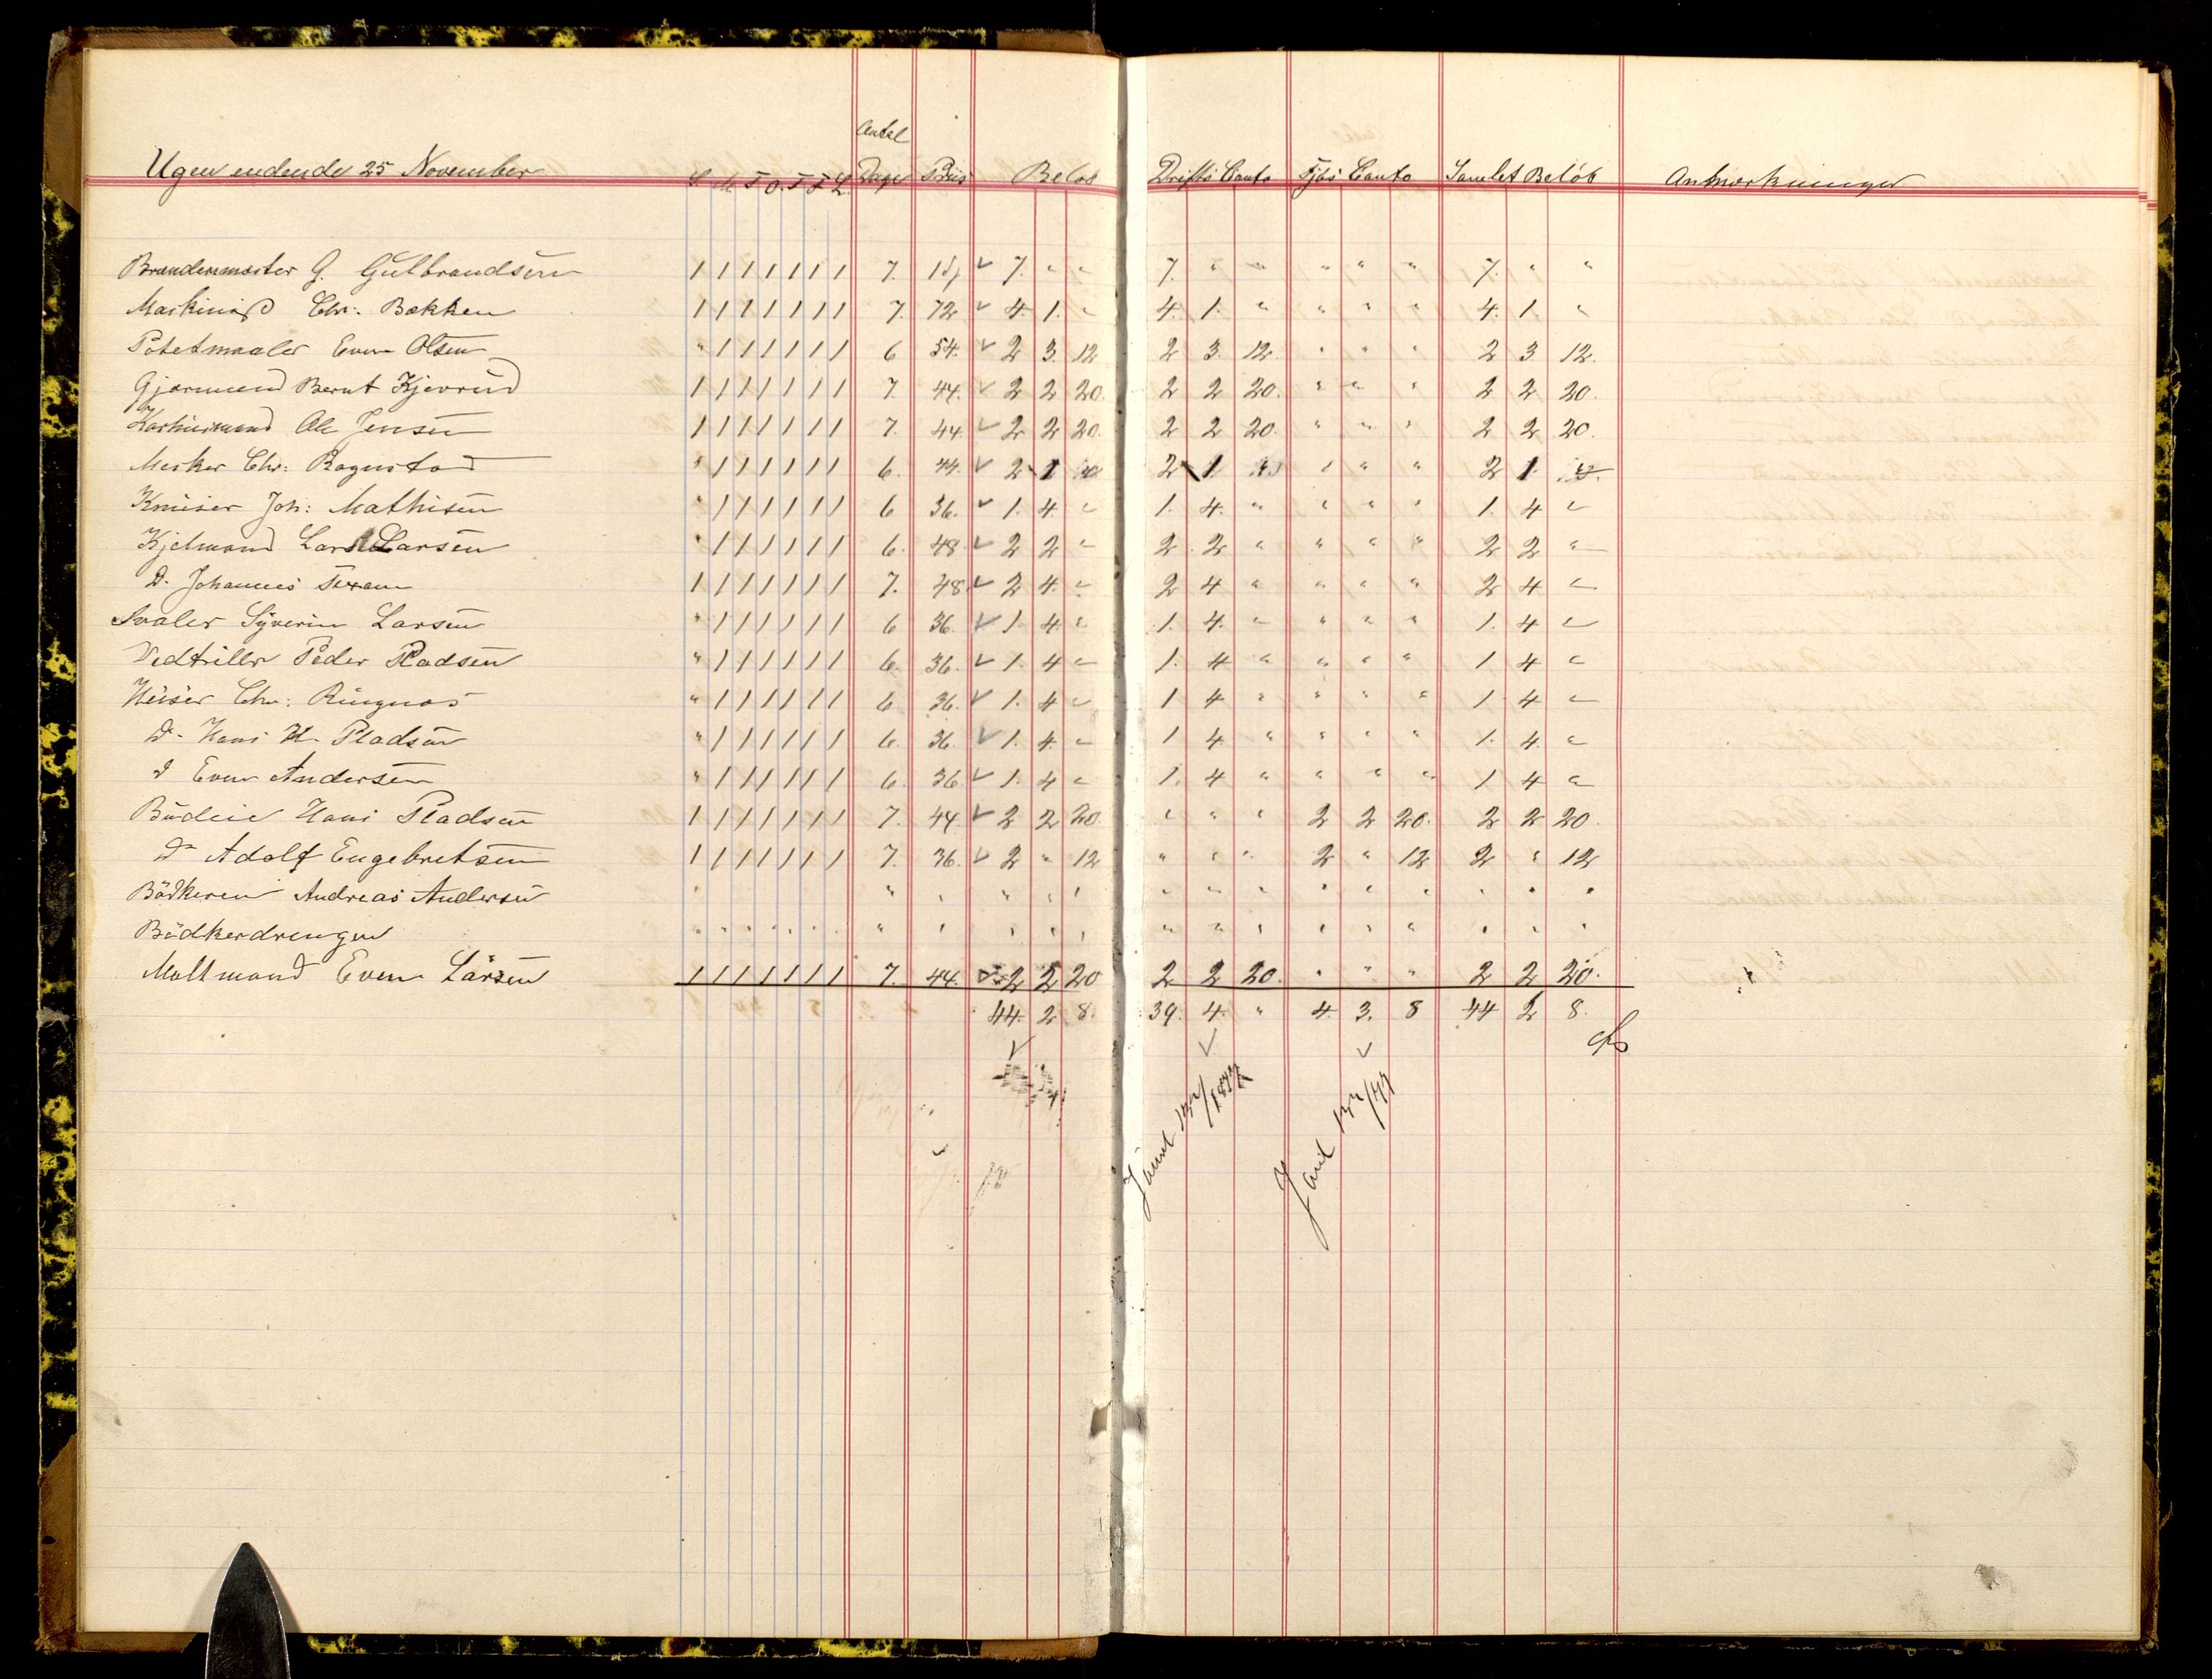 Antal
Ugen endende 25 November S. M. T. O. T. F. L. Dage Priis Beløb Drifts Conto Fjøs Conto Samlet Beløb Anmærkninger
Brændemester G. Gulbrandsen 1 1 1 1 1 1 1 7. ✓ 7. " " 7. " " " " " 7. " "
Maskinist Chr: Bækken 1 1 1 1 1 1 1 7. 72 ✓ 4. 1. " 4. 1. " " " " 4. 1. "
Potetmaaler Even Olsen " 1 1 1 1 1 1 6 54. ✓ 2 3. 12 2 3. 12. " " " 2 3 12.
Gjærmand Bernt Kjevrud 1 1 1 1 1 1 1 7. 44. ✓ 2 2 20. 2 2 20. " " " 2 2 20.
Ole Jensen 1 1 1 1 1 1 1 7. 44 ✓ 2 2 20. 2 2 20. " " " 2 2 20.
Mesker Chr: Rognstad " 1 1 1 1 1 1 6. 44. ✓ 2 1 2 1 " " " 2 1
Knuser Joh: Mathisen " 1 1 1 1 1 1 6 36. ✓ 1. 4. " 1. 4. " " " " 1. 4 "
Kjelmand Lars Larsen " 1 1 1 1 1 1 6. 48 ✓ 2 2 " 2 2 " " " " 2 2 "
D. Johannes 1 1 1 1 1 1 1 7. 48 ✓ 2 4. " 2 4 " " " " 2 4 "
Svaler Syverin Larsen " 1 1 1 1 1 1 6 36. ✓ 1. 4. " 1. 4. " " " " 1. 4 "
Vedtriller Peder Pladsen " 1 1 1 1 1 1 6. 36. ✓ 1. 4 " 1. 4 " " " " 1 4 "
Chr: Ringnæs " 1 1 1 1 1 1 6. 36. ✓ 1. 4 " 1 4 " " " " 1 4 "
D. Hans H. Pladsen " 1 1 1 1 1 1 6. 36 ✓ 1. 4. " 1 4 " " " " 1. 4. "
D Even Andersen " 1 1 1 1 1 1 6. 36 ✓ 1. 4 " 1. 4 " " " " 1 4 "
Budeie Hans Pladsen 1 1 1 1 1 1 1 7. 44. ✓ 2 2 20. " " " 2 2 20. 2 2 20.
Do Adolf Engebretsen 1 1 1 1 1 1 1 7. 36. ✓ 2 " 12 " " " 2 " 12 2 " 12
Bödkeren Andreas Andersen " " " " " " " " " " " " " " "
Bödkerdrengen " " " " " " " " " " " " " " " " " " " " "
Maltmand Even Larsen 1 1 1 1 1 1 1 7. 44. ✓ 2 2 20 2 2 20. " " " 2 2 20.
44. 2 8. 39. 4. " 4. 3. 8 44 2 8.
✓ ✓ ✓